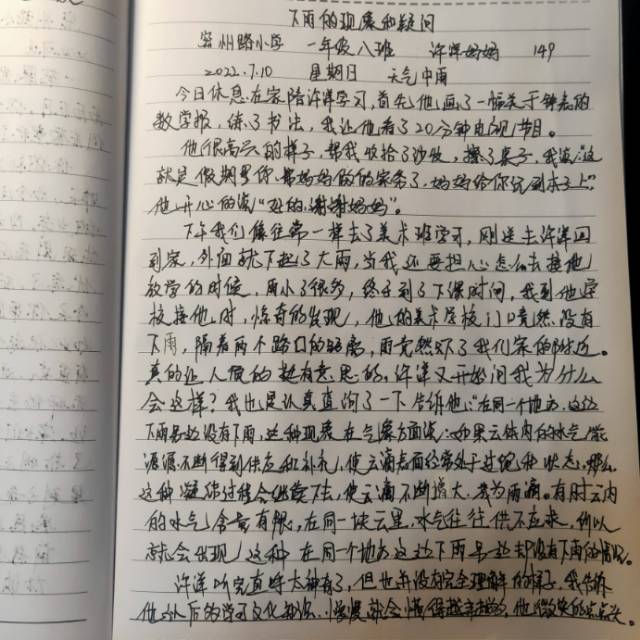 下雨的现象和疑问
密州路小学 一年级八班 许洋妈妈 149
2022.7.10 星期日 天气中雨
今日休息在家陪许洋学习,首先他画了一幅关于钟表的
数学报,练了书法,我让他看了20分钟电视节目。
他很高兴的样子,帮我收拾了沙发,擦了桌子,我说:"这
就是假期里你帮妈妈做的家务了,妈妈给你记到本子上"
他开心的说"好的,谢谢妈妈"。
下午我们像往常一样去了美术班学习,刚送去许洋回
到家,外面就下起了大雨,当我还要担心怎么去接他
放学的时候,雨小了很多,终于到了下课时间,我到他学
校接他时,惊奇的发现,他的美术学校门口竟然没有
下雨,隔着两个路口的距离,雨竟然只下了我们家的附近。
真的让人觉的挺有意思的,许洋又开始问我为什么
会这样?我也是认真查询了一下告诉他:"在同一个地方,这边
下雨另边没有下雨,这种现象在气象方面说:如果云体内的水气能
源源不断得到供应和补充,使云滴表面经常处于过饱和状态,那么
这种凝结过程会继续下去,使云滴不断增大,成为雨滴。有时云内
的水气含量有限,在同一块云里,水气往往供不应求,所以
就会出现这种在同一个地方这边下雨另一边却没有下雨的情况。
许洋听完直呼太神奇了,但也并没有完全理解的样子,我告诉
他以后的学习文化知识,慢慢就会懂得越来越多,他微笑的点点头。